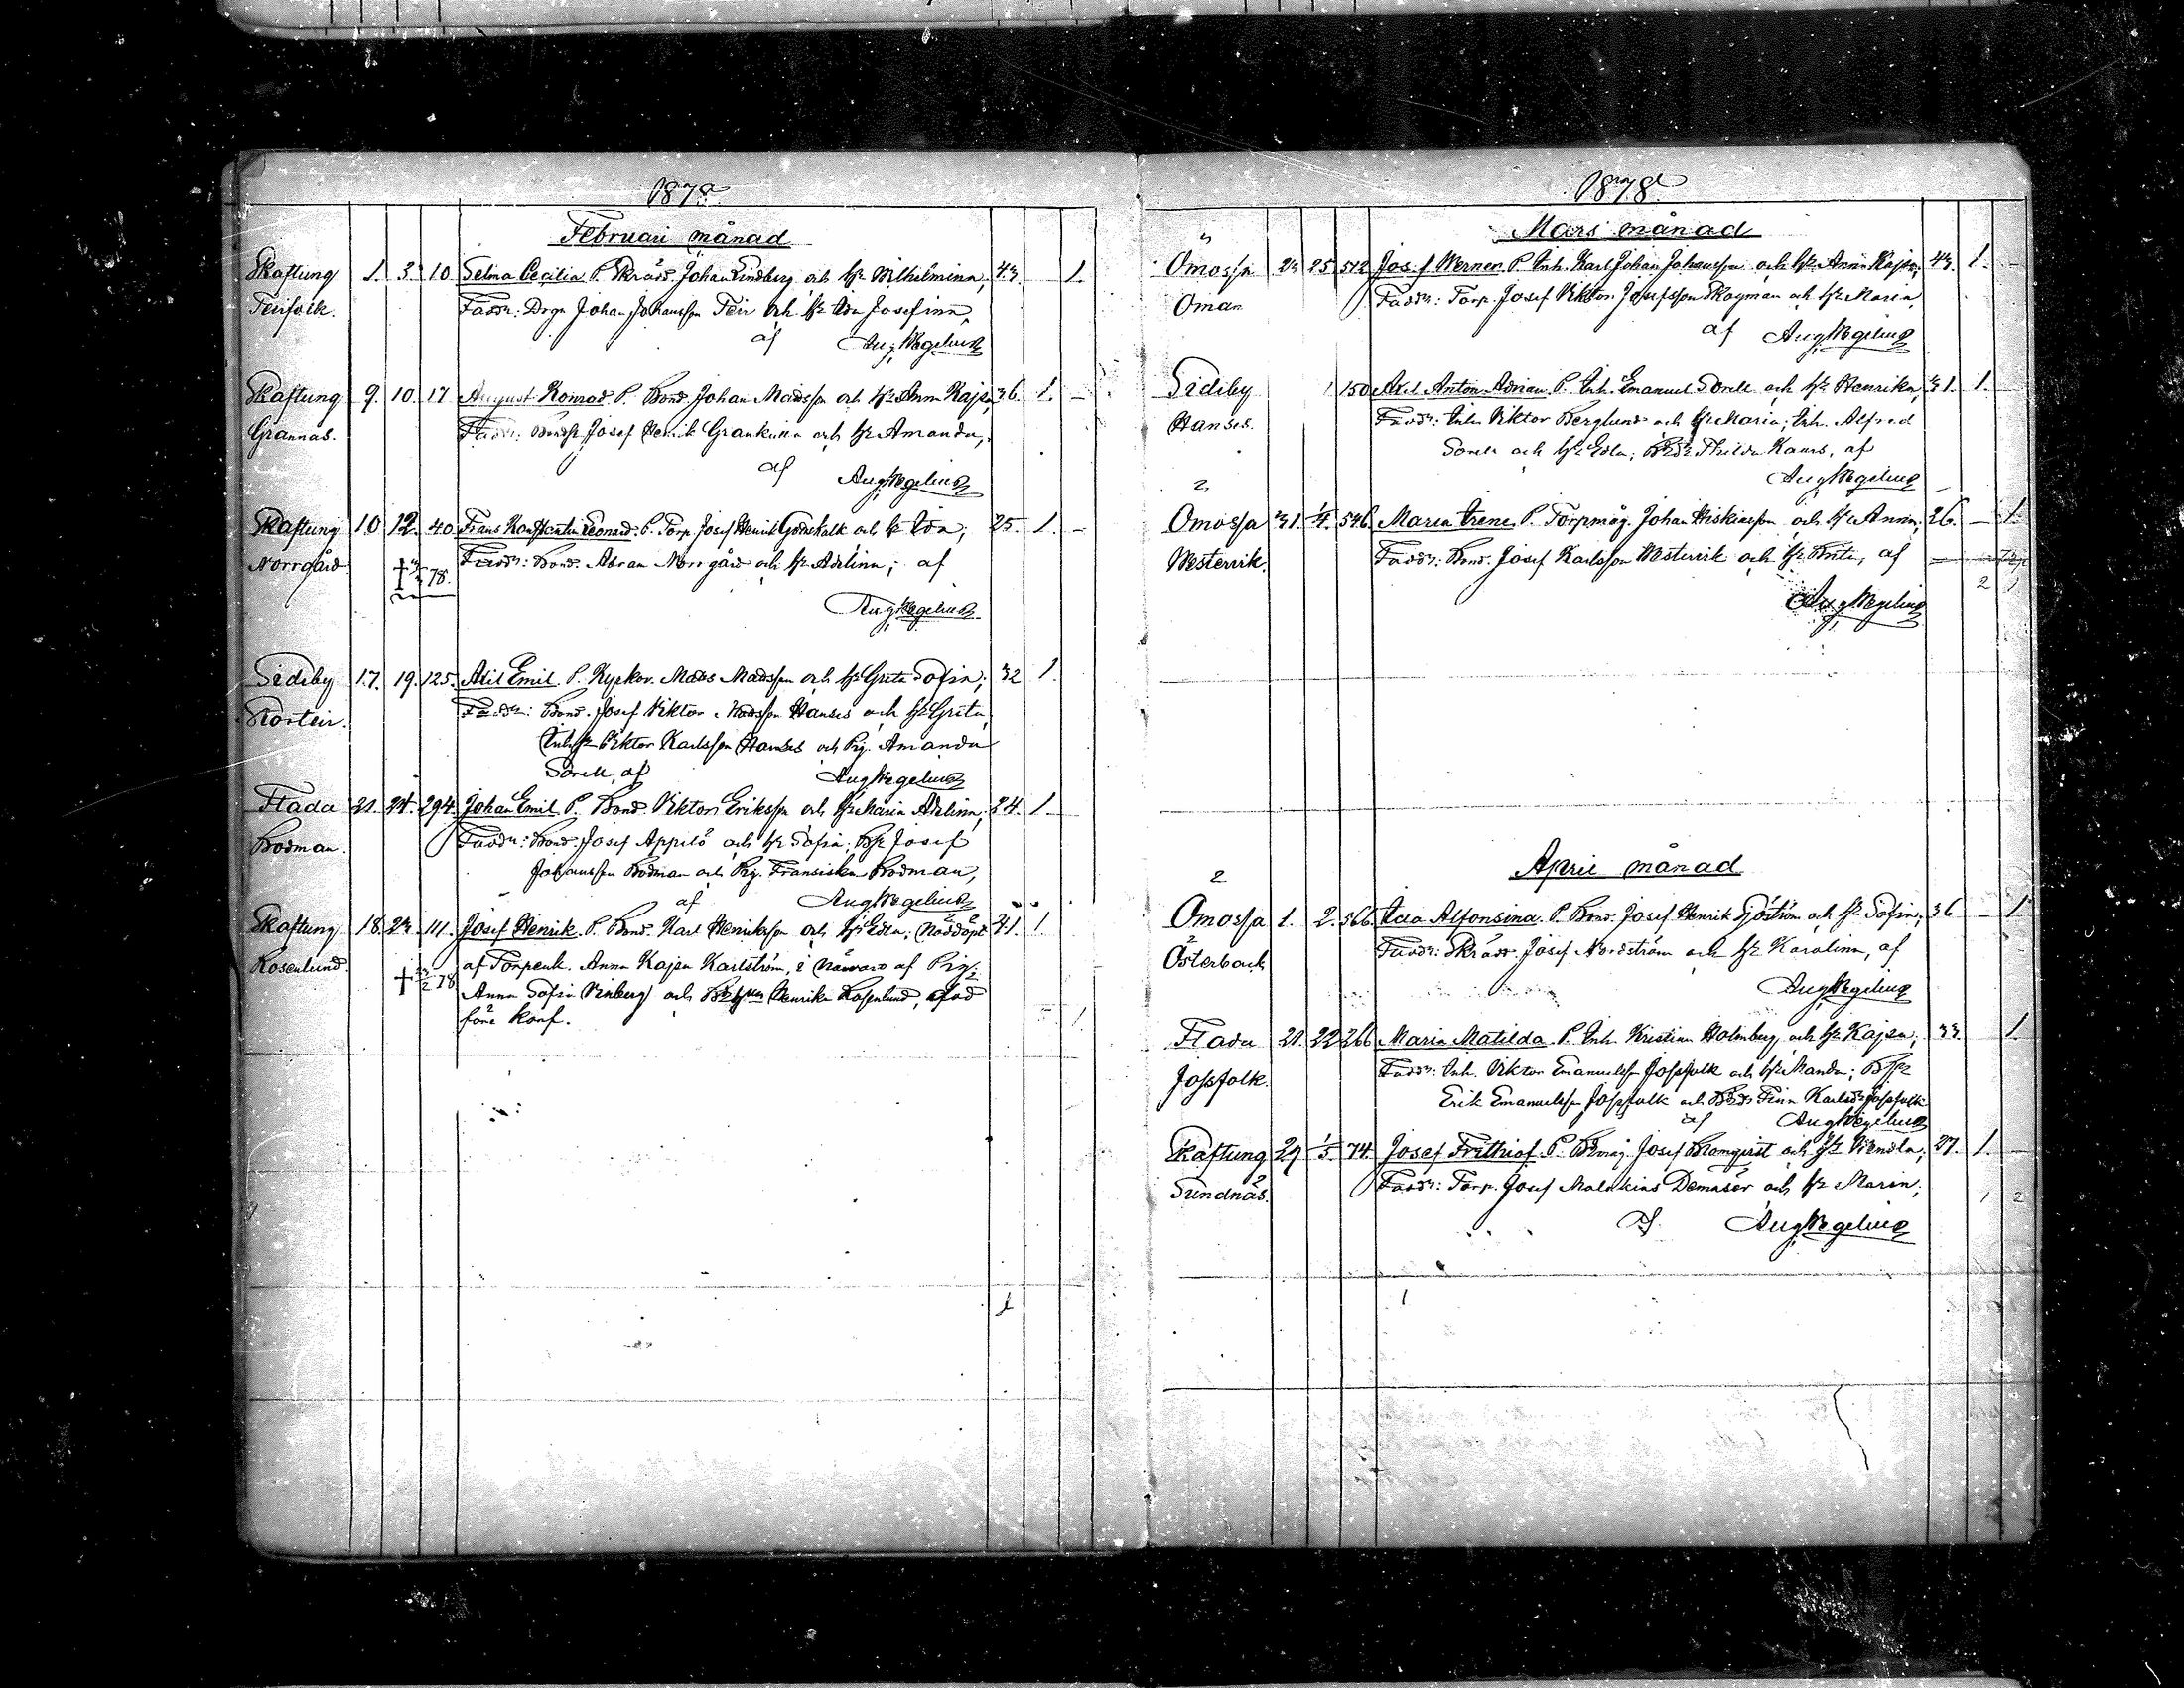 1878
Februari månad
Skaftung 1. 3. 10 Selma Cecilia P. Skrädd. Johan Lindberg och h. Wilhelmina, 43 1.
Teirfolk. Faddr: Drgn Johan Johansson Teir och h. Ida Josefina,
af AugWegelius
Skaftung 9. 10. 17 August Konrad P. Bond. Johan Madsson och h. Anna Kajsa, 36. 1. -
Grannas. Faddr: Josef Henrik Grankulla och h. Amanda,
af AugWegelius
Skaftung 10 12. 40 Frans Konstantin Leonard. P. Torp. Josef Henrik Godtskalk och h. Ida; 25. 1. -
Norrgård † 78. Faddr: Bond. Abram Norrgård och h. Adelina; af
AugWegelius
Sideby 17. 19. 125. Axel Emil P. Kyrkov. Mats Madsson och h. Greta Sofia; 32 1.
Storteir. Faddr: Bond. Josef Viktor Madsson Hanses och h. Greta,
Viktor Karlsson Hanses och Pig. Amanda
Sorell, af AugWegelius
Flada 21. 24. 294. Johan Emil P. Bond. Viktor Eriksson och h. Maria Adelina; 24. 1
Bodman. Faddr: Bond. Josef Appelö och h. Sofia; Josef
Johansson Bodman och Pig. Fransiska Bodman,
af AugWegelius
Skaftung 18. 23. 111. Josef Henrik. P. Bond. Karl Henriksson och h. Edla; Nöddöpt 21. 1.
Rosenlund † 78 af Torpenk. Anna Kajsa Karlström, i närvaro af Pig.
Anna Sofia Vinberg och Henrika Rosenlund, afled
före konf.
1878
Mars månad
Ömossa 23 25 512 Josef Werner P. Inh. Karl Johan Johansson och h. Anna Kajsa, 43. 1.
Öman Faddr: Torp. Josef Viktor Josefsson Skogman och h. Maria
af AugWegelius
Sideby 150 Axel Anton Adrian P. Inh. Emanuel Sorell och h. Henrika, 31. 1.
Hanses. Faddr: Inh. Viktor Berglund och h. Maria; Inh. Alfred
Sorell och h. Edla; Thilda Kaurs, af
AugWegelius
Ömossa 31. 1/4. 546 Maria Irene P. Torpmåg. Johan Hiskiasson och h. Anna, 26. - 1.
Westervik. Faddr: Bond. Josef Karlsson Westervik och h. Brita, af
2
AugWegelius
April månad
Ömossa 1. 2. 566. Ida Alfonsina. P. Bond. Josef Henrik Sjöström och h. Sofia; 36 - 1
Österback Faddr: Skrädd. Josef Nordström och h. Karolina, af
AugWegelius
Flada 21. 22 266 Maria Matilda. P. Inh. Kristian Holmberg och h. Kajsa; 33. 1.
Jossfolk. Faddr: Inh. Viktor Emanuelsson Jossfolk och h. Manda;
Erik Emanuelsson Jossfolk och Fina Karlsdr Jossfolk
af AugWegelius
Skaftung 29 1/5. 74. Josef Frithiof P. Josef Blomqvist och h. Wendla; 27. 1.
Sundnäs. Faddr: Torp. Josef Malakias Demasör och h. Maria; 1 2
Af. AugWegelius